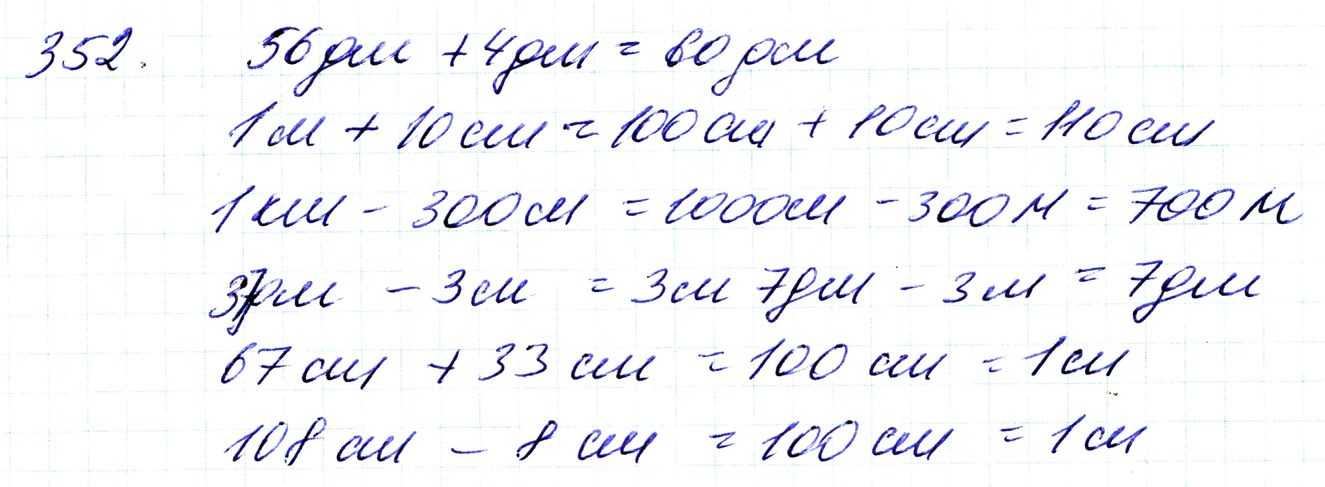 352. 56дм + 4дм = 60дм
1м + 10см = 100см + 10см = 110см
1км - 300м = 1000м - 300м = 700м
37дм - 3м = 3м 7дм - 3м = 7дм
67см + 33см = 100см = 1м
108см - 8см = 100см = 1м